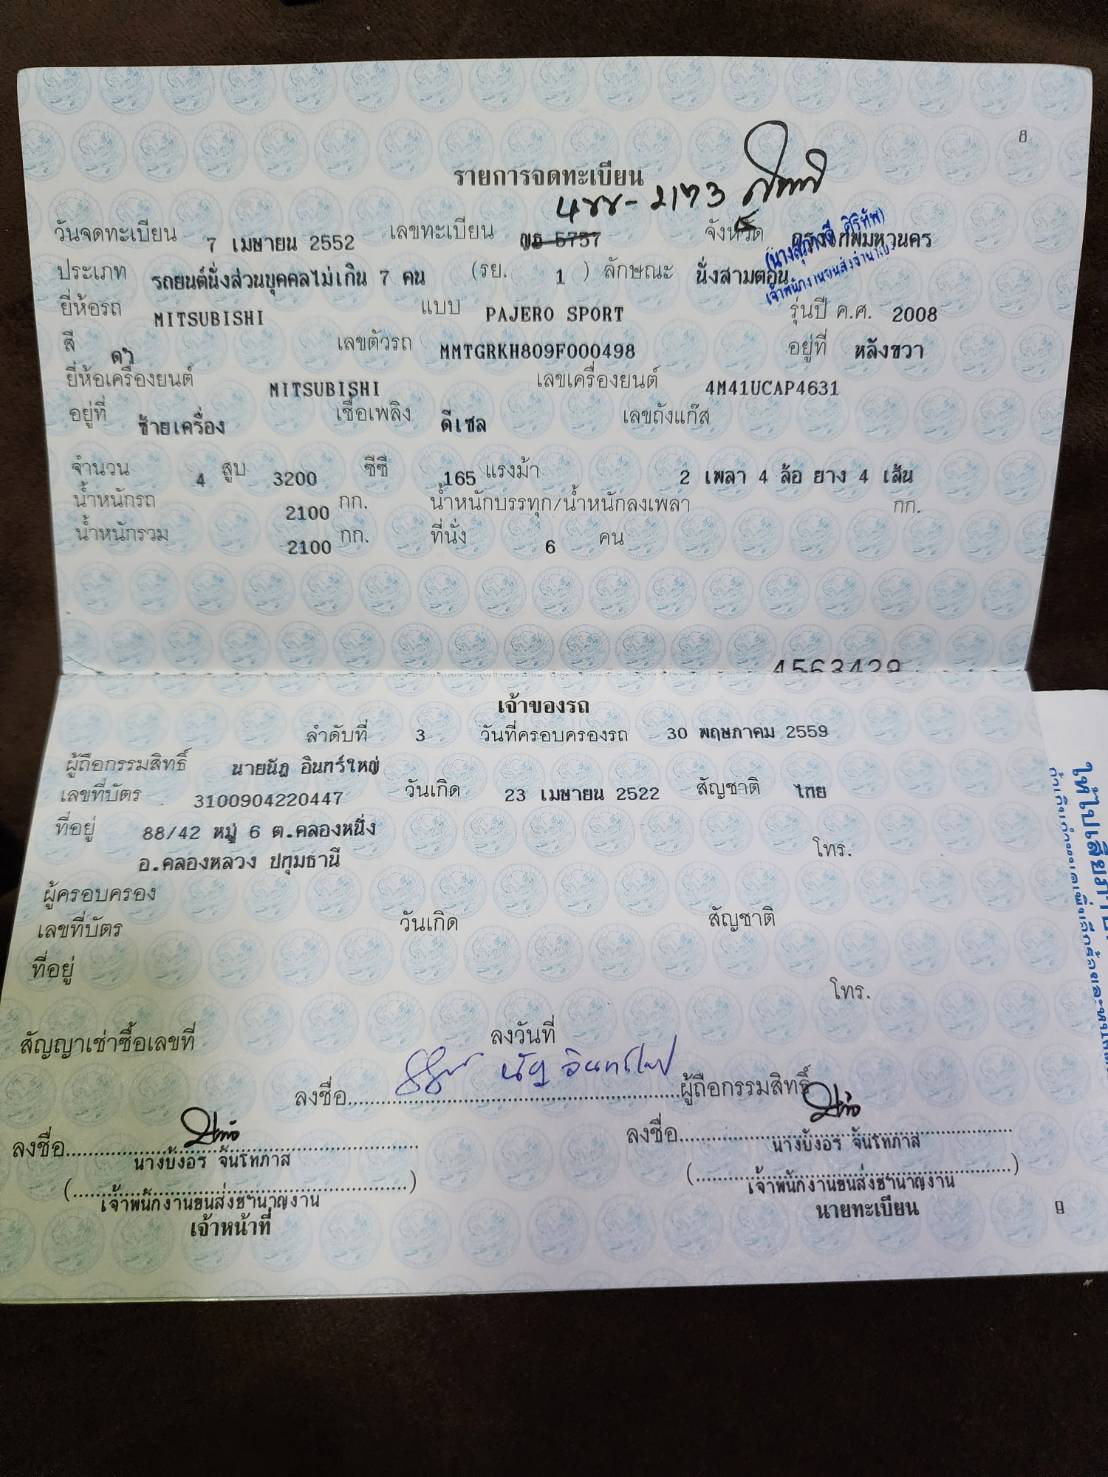 8
รายการจดทะเบียน
วันจดทะเบียน 7 เมษายน 2552 เลขทะเบียน 5757 จังหวัด กรุงเทพมหานคร
ประเภท รถยนต์นั่งส่วนบุคคลไม่เกิน 7 คน (รย. 1 ) ลักษณะ นั่งสามตอน
ยี่ห้อรถ MITSUBISHI แบบ PAJERO SPORT รุ่นปี ค.ศ. 2008
สี ดำ เลขตัวรถ MMTGRKH809F000498 อยู่ที่ หลังขวา
ยี่ห้อเครื่องยนต์ MITSUBISHI เลขเครื่องยนต์ 4M41UCAP4631
อยู่ที่ ซ้ายเครื่อง เชื้อเพลิง ดีเซล เลขถังแก๊ส
จำนวน 4 สูบ 3200 ซีซี 165 แรงม้า 2 เพลา 4 ล้อ ยาง 4 เส้น
น้ำหนักรถ 2100 กก. น้ำหนักบรรทุก/น้ำหนักลงเพลา กก.
น้ำหนักรวม 2100 กก. ที่นั่ง 6 คน
4563429
เจ้าของรถ
ลำดับที่ 3 วันที่ครอบครองรถ 30 พฤษภาคม 2559
ผู้ถือกรรมสิทธิ์ นายนัฏ อินทร์ใหญ่
เลขที่บัตร 3100904220447 วันเกิด 23 เมษายน 2522 สัญชาติ ไทย
ที่อยู่ 88/42 หมู่ 6 ต.คลองหนึ่ง
อ.คลองหลวง ปทุมธานี โทร.
ผู้ครอบครอง
เลขที่บัตร วันเกิด สัญชาติ
ที่อยู่
โทร.
สัญญาเช่าซื้อเลขที่ ลงวันที่
ลงชื่อ ผู้ถือกรรมสิทธิ์
ลงชื่อ ลงชื่อ
นางบังอร จันโทภาส นางบังอร จันโทภาส
(เจ้าพนักงานขนส่งชำนาญงาน) (เจ้าพนักงานขนส่งชำนาญงาน)
เจ้าหน้าที่ นายทะเบียน 9